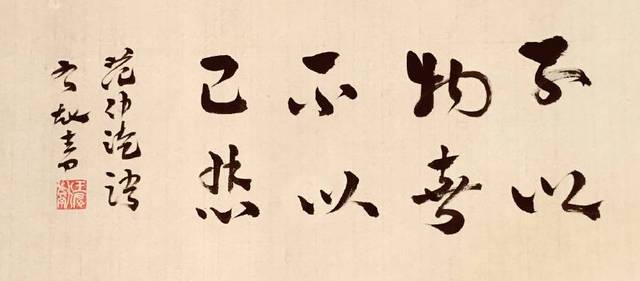 不以
物喜
不以
己悲
范仲淹語
書